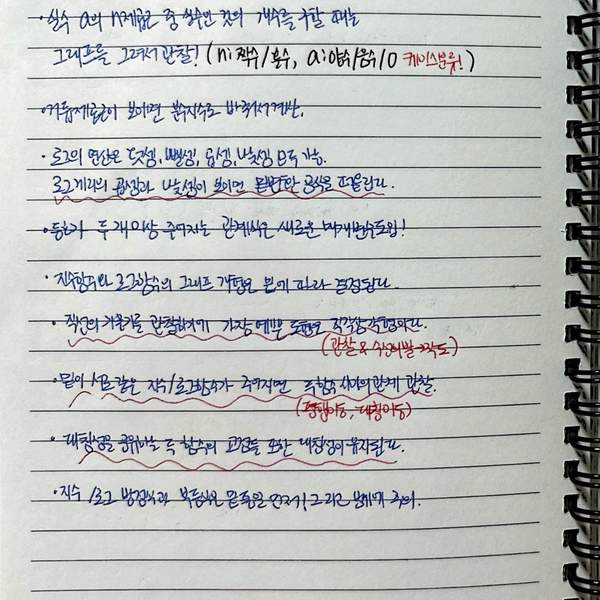 · 실수 a의 n제곱근 중 실수인 것의 개수를 구할 때는
그래프를 그려서 관찰! (n:짝수/홀수, a:양수/음수/0 케이스분류!)
· 거듭제곱근이 보이면 분수지수로 바꿔서 계산.
· 로그의 연산은 덧셈, 뺄셈, 곱셈, 나눗셈 모두 가능.
로그끼리의 곱셈과 나눗셈이 보이면 밑변환 공식을 떠올린다.
· 등호가 두 개 이상 주어지는 관계식은 새로운 매개변수도입!
· 지수함수와 로그함수의 그래프 개형은 밑에 따라 결정된다.
· 직선의 기울기를 관찰하기에 가장 예쁜 도형은 직각삼각형이다.
(관찰 & 수선의발 → 작도)
· 밑이 서로 같은 지수/로그함수가 주어지면 두 함수 사이의 관계 관찰.
(평행이동, 대칭이동)
· 대칭성을 공유하는 두 함수의 교점들 또한 대칭성이 유지된다.
· 지수/로그 방정식과 부등식은 밑 통일 먼저! 그리고 범위에 주의.